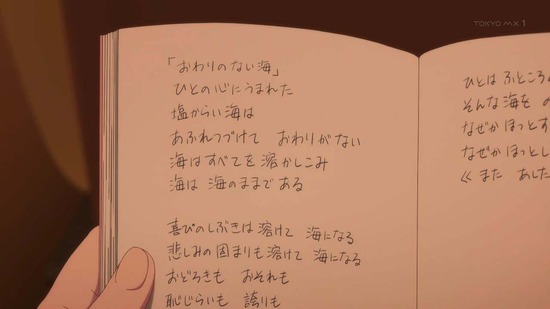 TOKYO MX 1
「おわりのない海」
ひとの心にうまれた
塩からい海は
あふれつづけて おわりがない
海はすべてを溶かしこみ
海は 海のままである
喜びのしぶきは溶けて 海になる
悲しみの固まりも溶けて 海になる
おどろきも おそれも
恥じらいも 誇りも
ひとは ふところ
そんな海を
なぜかほっとす
なぜかほっとし
くく また あした